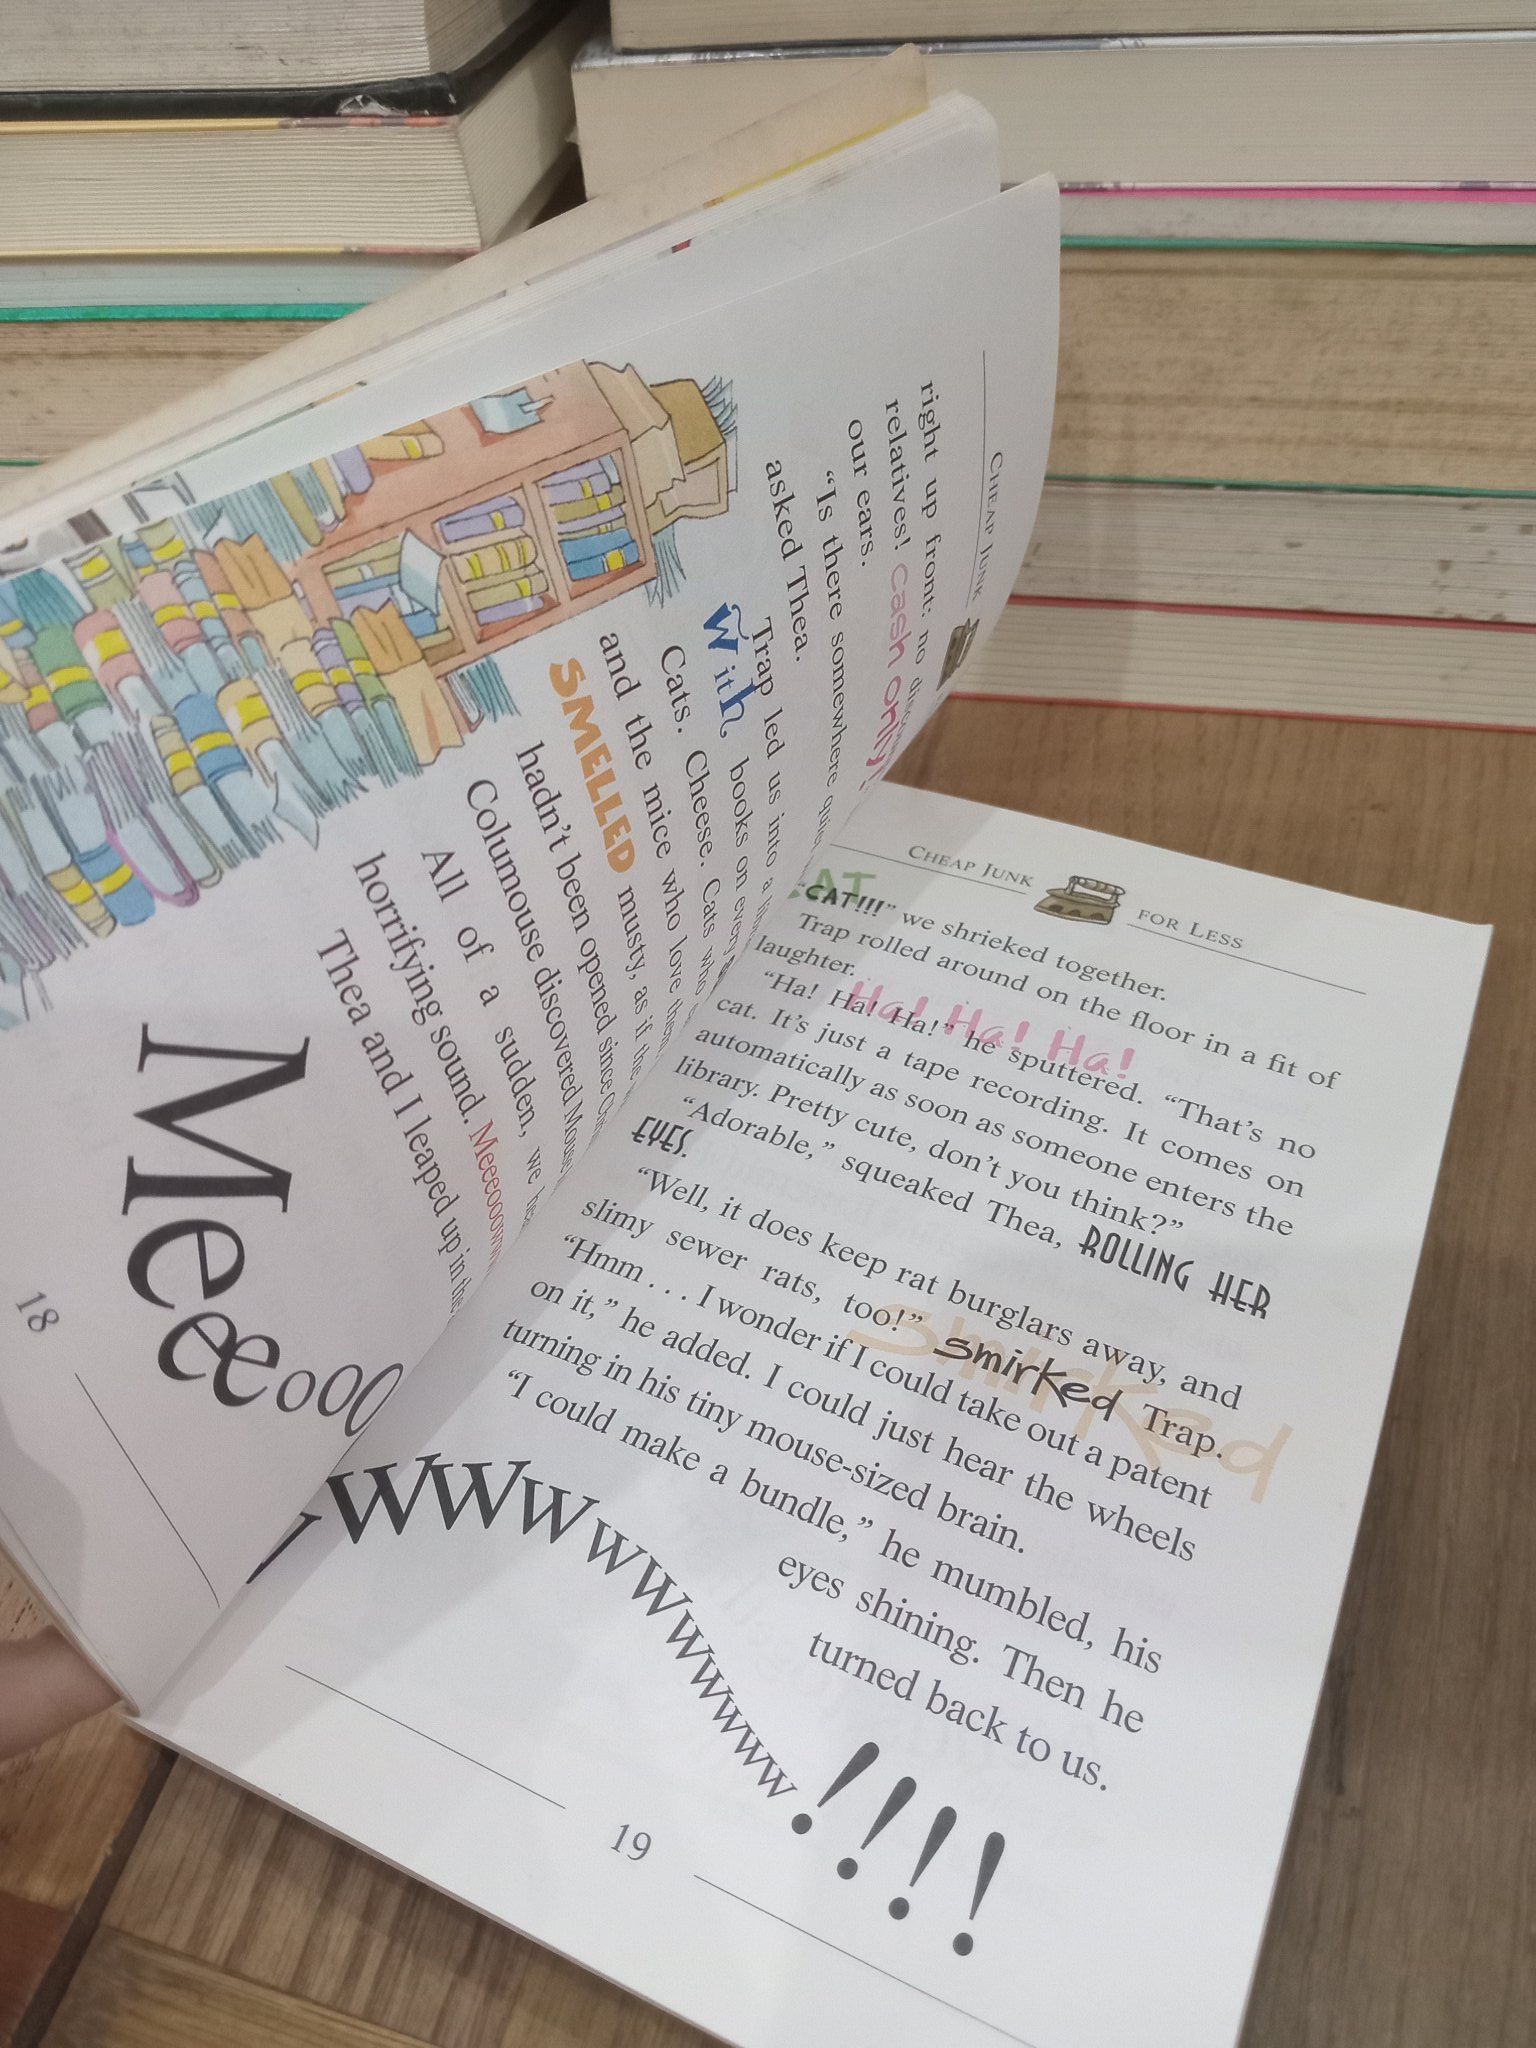 CHEAP JUNK
right up front: no
relatives! Cash only!
our ears.
"Is there somewhere
asked Thea.
Trap led us into a
with books on every
Cats. Cheese. Cats who
and the mice who love them
SMELLED musty, as if the
hadn't been opened since
Columouse discovered
All of a sudden, we
horrifying sound. Meeeoooww
Thea and I leaped up in the
Meeeooo
18
CHEAP JUNK FOR LESS
"CAT!!!" we shrieked together.
Trap rolled around on the floor in a fit of
laughter.
"Ha! Ha! Ha!" he sputtered. "That's no
cat. It's just a tape recording. It comes on
automatically as soon as someone enters the
library. Pretty cute, don't you think?"
"Adorable," squeaked Thea, ROLLING HER
EYES.
"Well, it does keep rat burglars away, and
slimy sewer rats, too!" smirked Trap.
"Hmm . . . I wonder if I could take out a patent
on it," he added. I could just hear the wheels
turning in his tiny mouse-sized brain.
"I could make a bundle," he mumbled, his
eyes shining. Then he
turned back to us.
wwwwwwwwwww!!!!
19